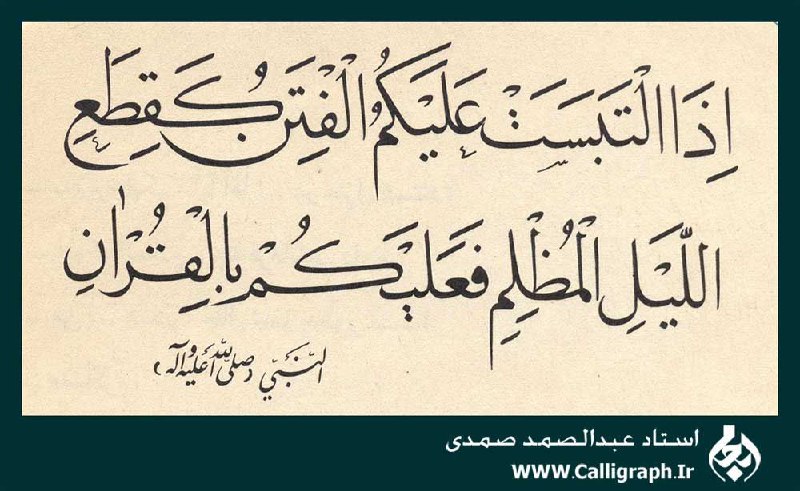 اِذَا الْتَبَسَتْ عَلَيْكُمُ الْفِتَنُ كَقِطَعِ
اللَّيْلِ الْمُظْلِمِ فَعَلَيْكُمْ بِالْقُرْاٰنِ
النَّبِيّ (صلى الله عليه وآله)
استاد عبدالصمد صمدی
WWW.Calligraph.Ir